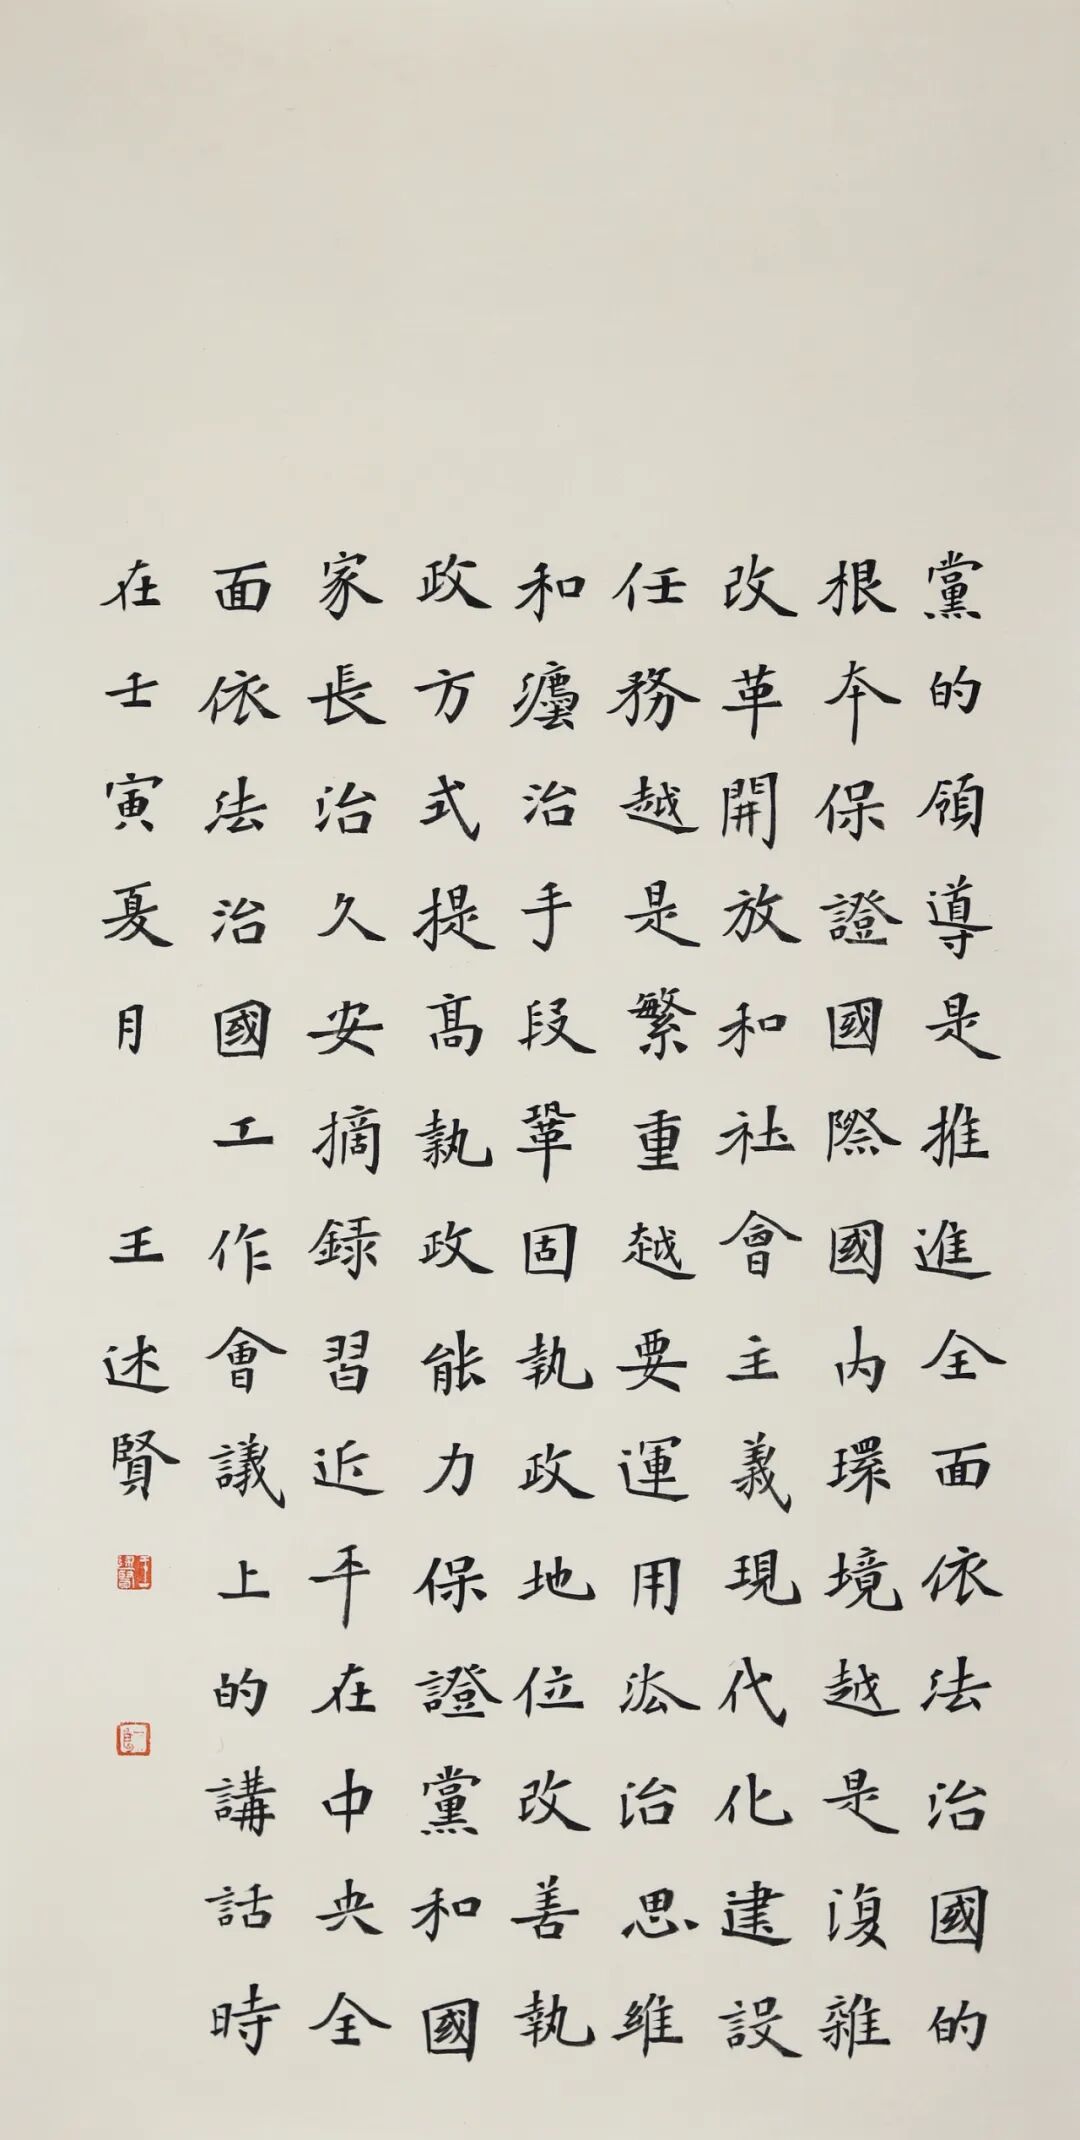 黨的領導是推進全面依法治國的
根本保證國際國內環境越是復雜
改革開放和社會主義現代化建設
任務越是繁重越要運用法治思維
和灋治手段鞏固執政地位改善執
政方式提髙執政能力保證黨和國
家長治久安摘録習近平在中央全
面依法治國工作會議上的講話時
在壬寅夏月 王述賢